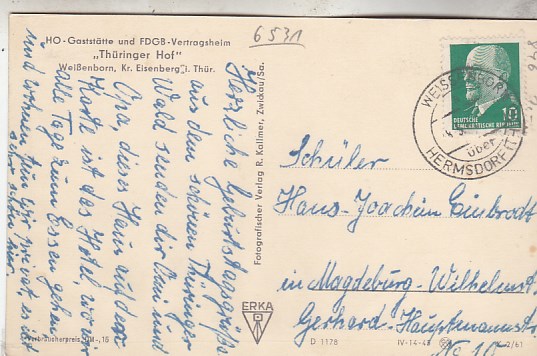 HO-Gaststätte und FDGB-Vertragsheim
„Thüringer Hof"
Weißenborn, Kr. Eisenberg i. Thür.
6531
Herzliche Geburtstagsgrüße
aus dem schönen Thüringer
Wald senden dir Omi und
Opa dieses Haus auf der
Karte ist das Hotel, wo wir
alle Tage zum Essen gehen
und wohnen tun wir privat, es ist
sehr schön hier
Verbraucherpreis: DM -,15
Fotografischer Verlag R. Kallmer, Zwickau/Sa.
ERKA
WEISSENBORN
über
HERMSDORF
10
DEUTSCHE
DEMOKRATISCHE REPUBLIK
Schüler
Hans-Joachim Einbrodt
in Magdeburg-Wilhelmst.
Gerhard-Hauptmannstr.
No 10
D 1178
IV-14-45
2/61